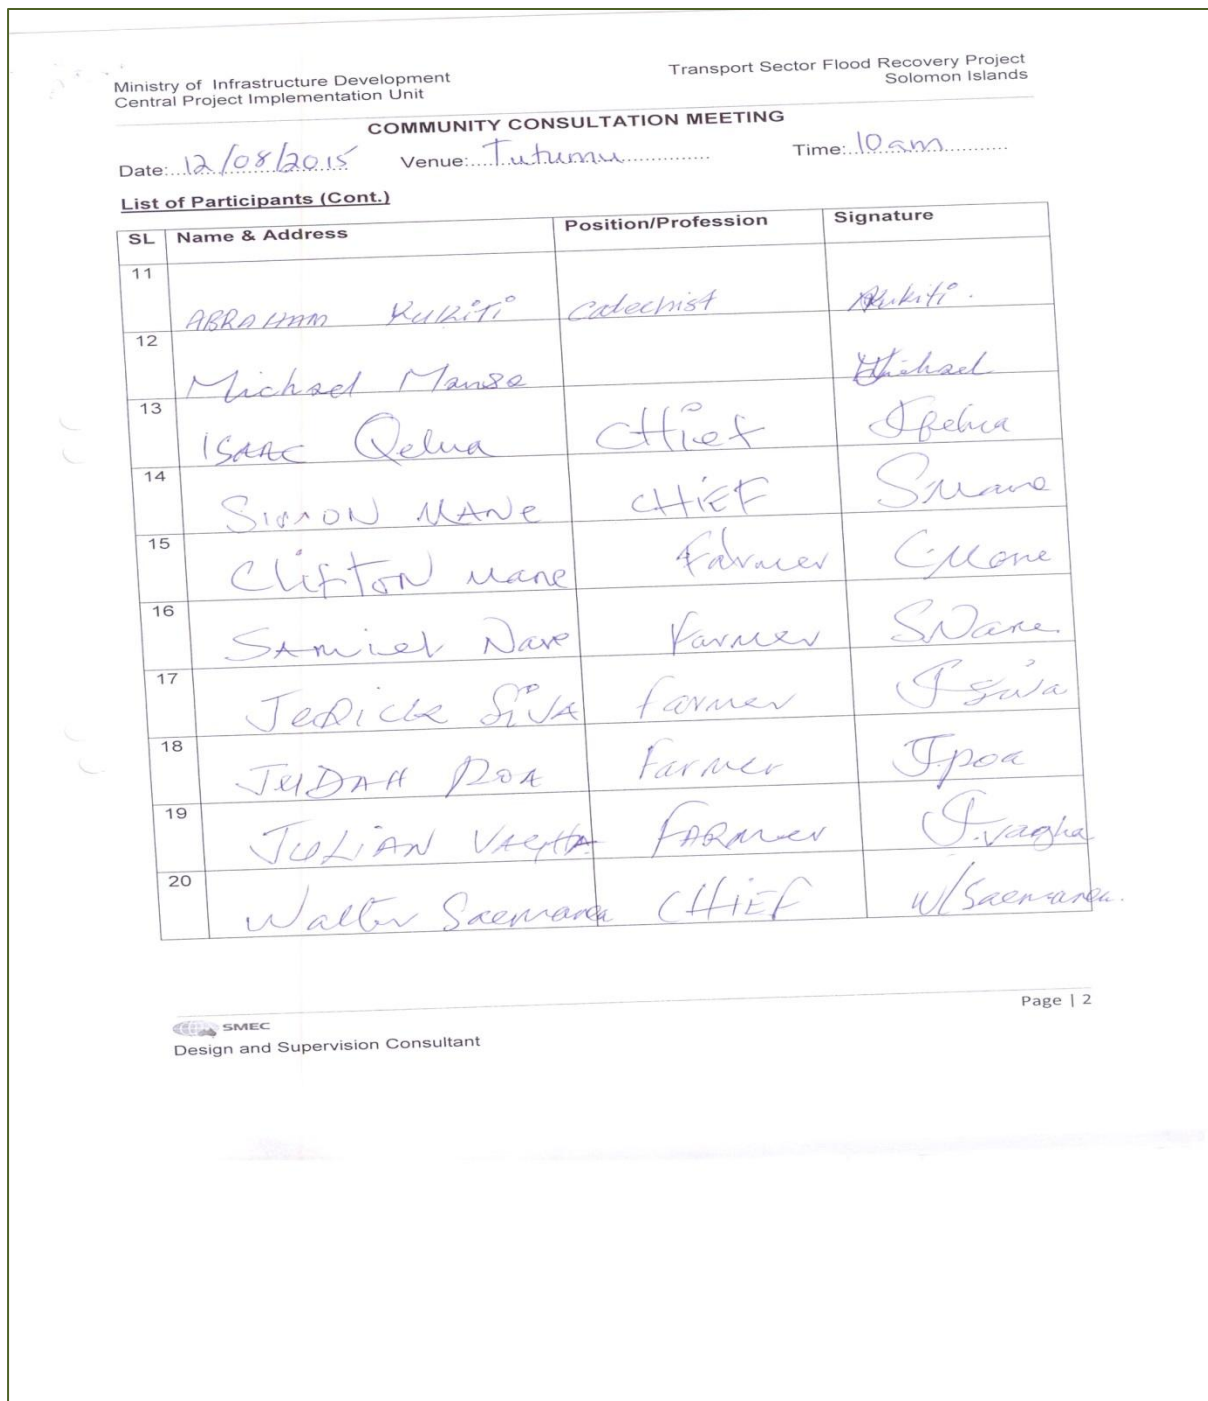 Ministry of Infrastructure Development
Central Project Implementation Unit
Transport Sector Flood Recovery Project
Solomon Islands
COMMUNITY CONSULTATION MEETING
Date: 12/08/2015 Venue: Tutumu Time: 10am
List of Participants (Cont.)
SL Name & Address Position/Profession Signature
11 ABRAHAM KUKITI Catechist AKukiti.
12 Michael Michael
13 ISAAC Qelua CHief
14 SIMON MANE CHIEF SMane
15 Clifton Mane Farmer C.Mane
16 Samuel Nare Farmer SNare
17 JeRick SiVA farmer JSiva
18 JUDAH POA Farmer J.poa
19 JULiAN VAGHA FARMer J.vagha
20 Walter Saemanea CHIEF W/Saemanea.
Page | 2
SMEC
Design and Supervision Consultant